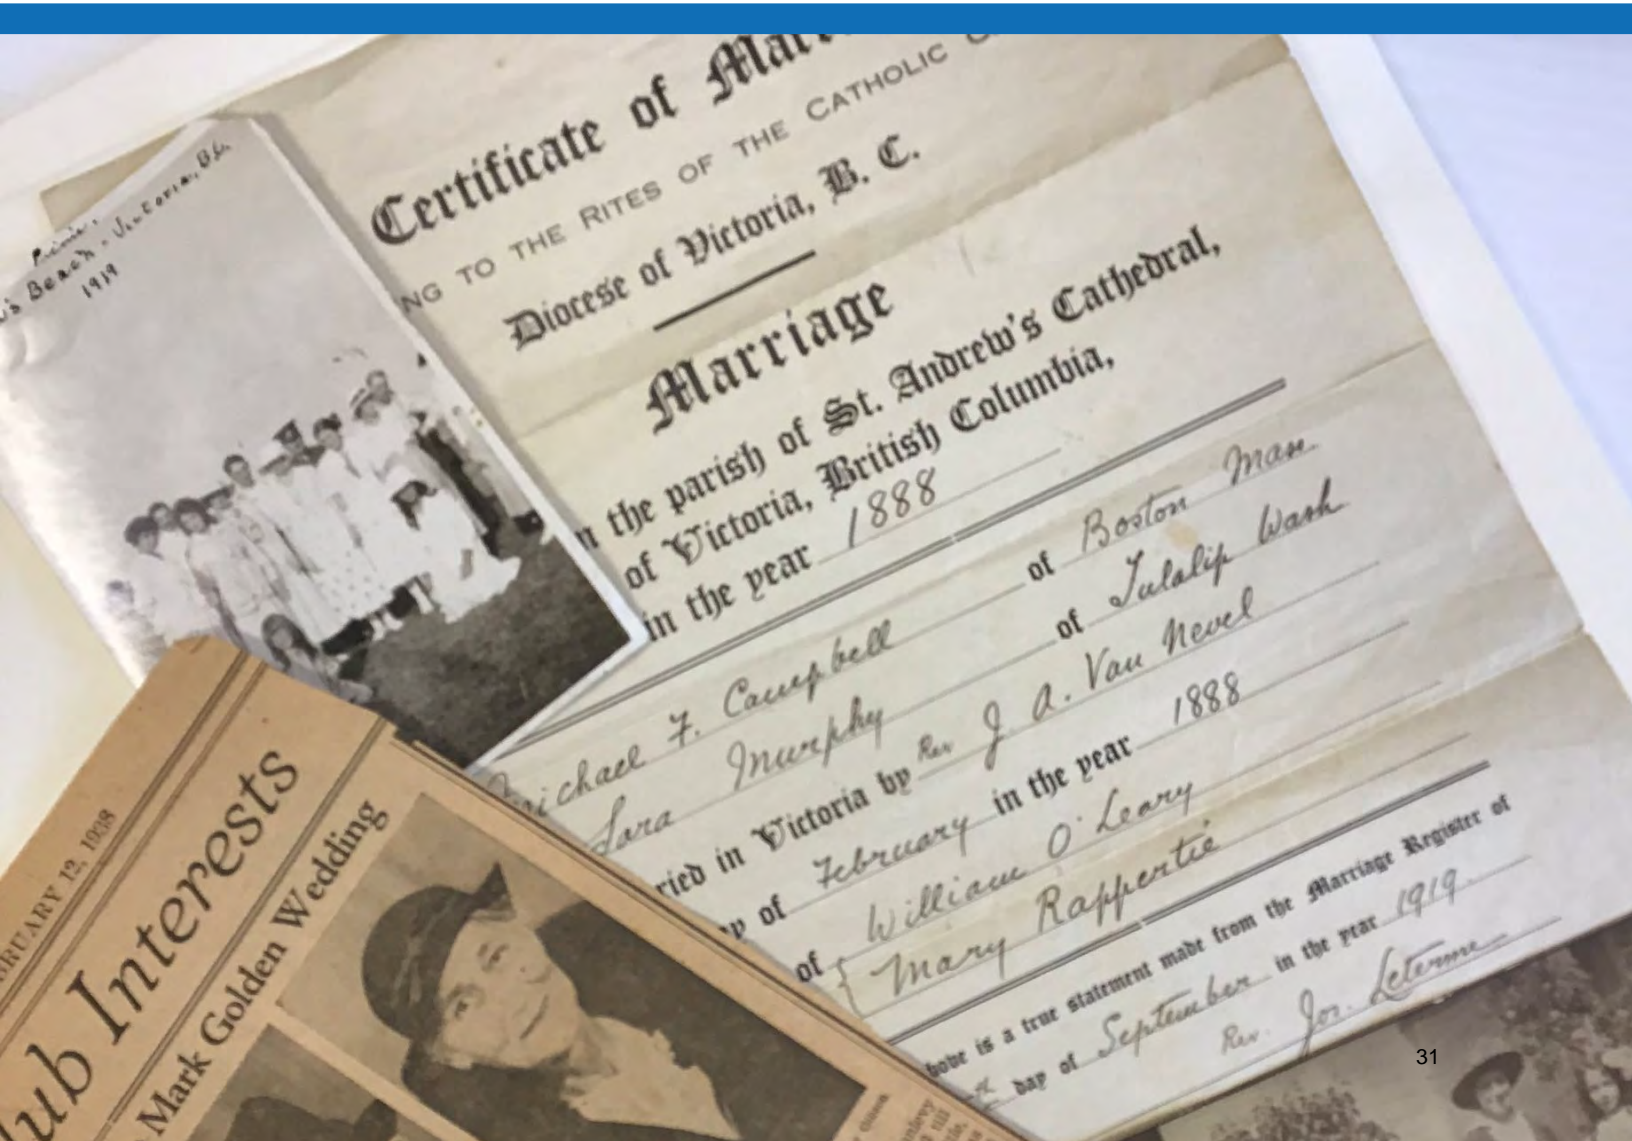 Certificate of Mar
NG TO THE RITES OF THE CATHOLIC
Diocese of Victoria, B. C.
Marriage
n the parish of St. Andrew's Cathedral,
of Victoria, British Columbia,
in the year 1888
Michael F. Campbell of Boston Mass
Sara Murphy of Tulalip Wash
ried in Victoria by Rev J. A. Van Nevel
y of February in the year 1888
of William O'Leary
Mary Rappertie
bove is a true statement made from the Marriage Register of
day of September in the year 1919
Rev. Jos. Leterme
Picnic
's Beach - Victoria, B.C.
1919
BRUARY 12, 1938
ub Interests
Mark Golden Wedding
31